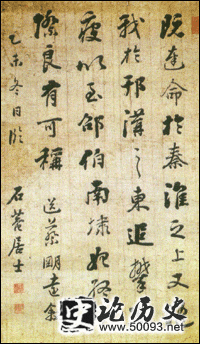 既達命於秦淮之上又
我於邗溝之東追攀
疲以至邵伯南埭始終
際良有可稱 送蔡明遠叙
乙未冬日臨
石菴居士
论历史
www.50093.net